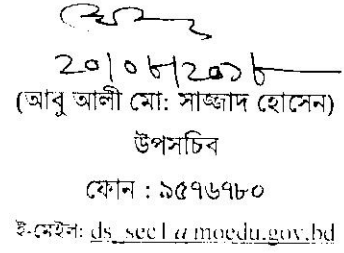 20/06/2018
(আবু আলী মো: সাজ্জাদ হোসেন)
উপসচিব
ফোন : ৯৫৭৬৭৮০
ই-মেইল: ds_sec1@moedu.gov.bd